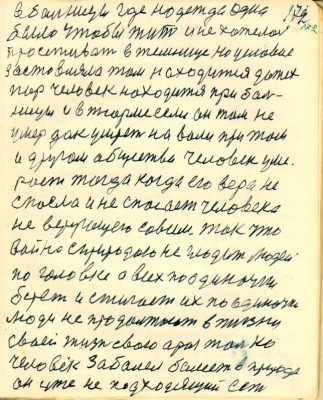 в больницы где надежда одна 172
было чтобы жить и не хотелос
просиживат в темнице но условие
заставляла там находится до тех
пор человек находится при бол-
ницы и в тюрме если он там не
умер дак умрет на воли при том
и другом общества человек уми-
рает тогда когда его вера не
спасла и не спасает человека
не верующего совсем. так что
война с природаю не гладит людей
по головке а всех по одиночки
берет и стигает их по одиночки
люди не продолжают в жизни
своей жизн свою а рас только
человек заболел болеет в природе
он уже не подходящий сет